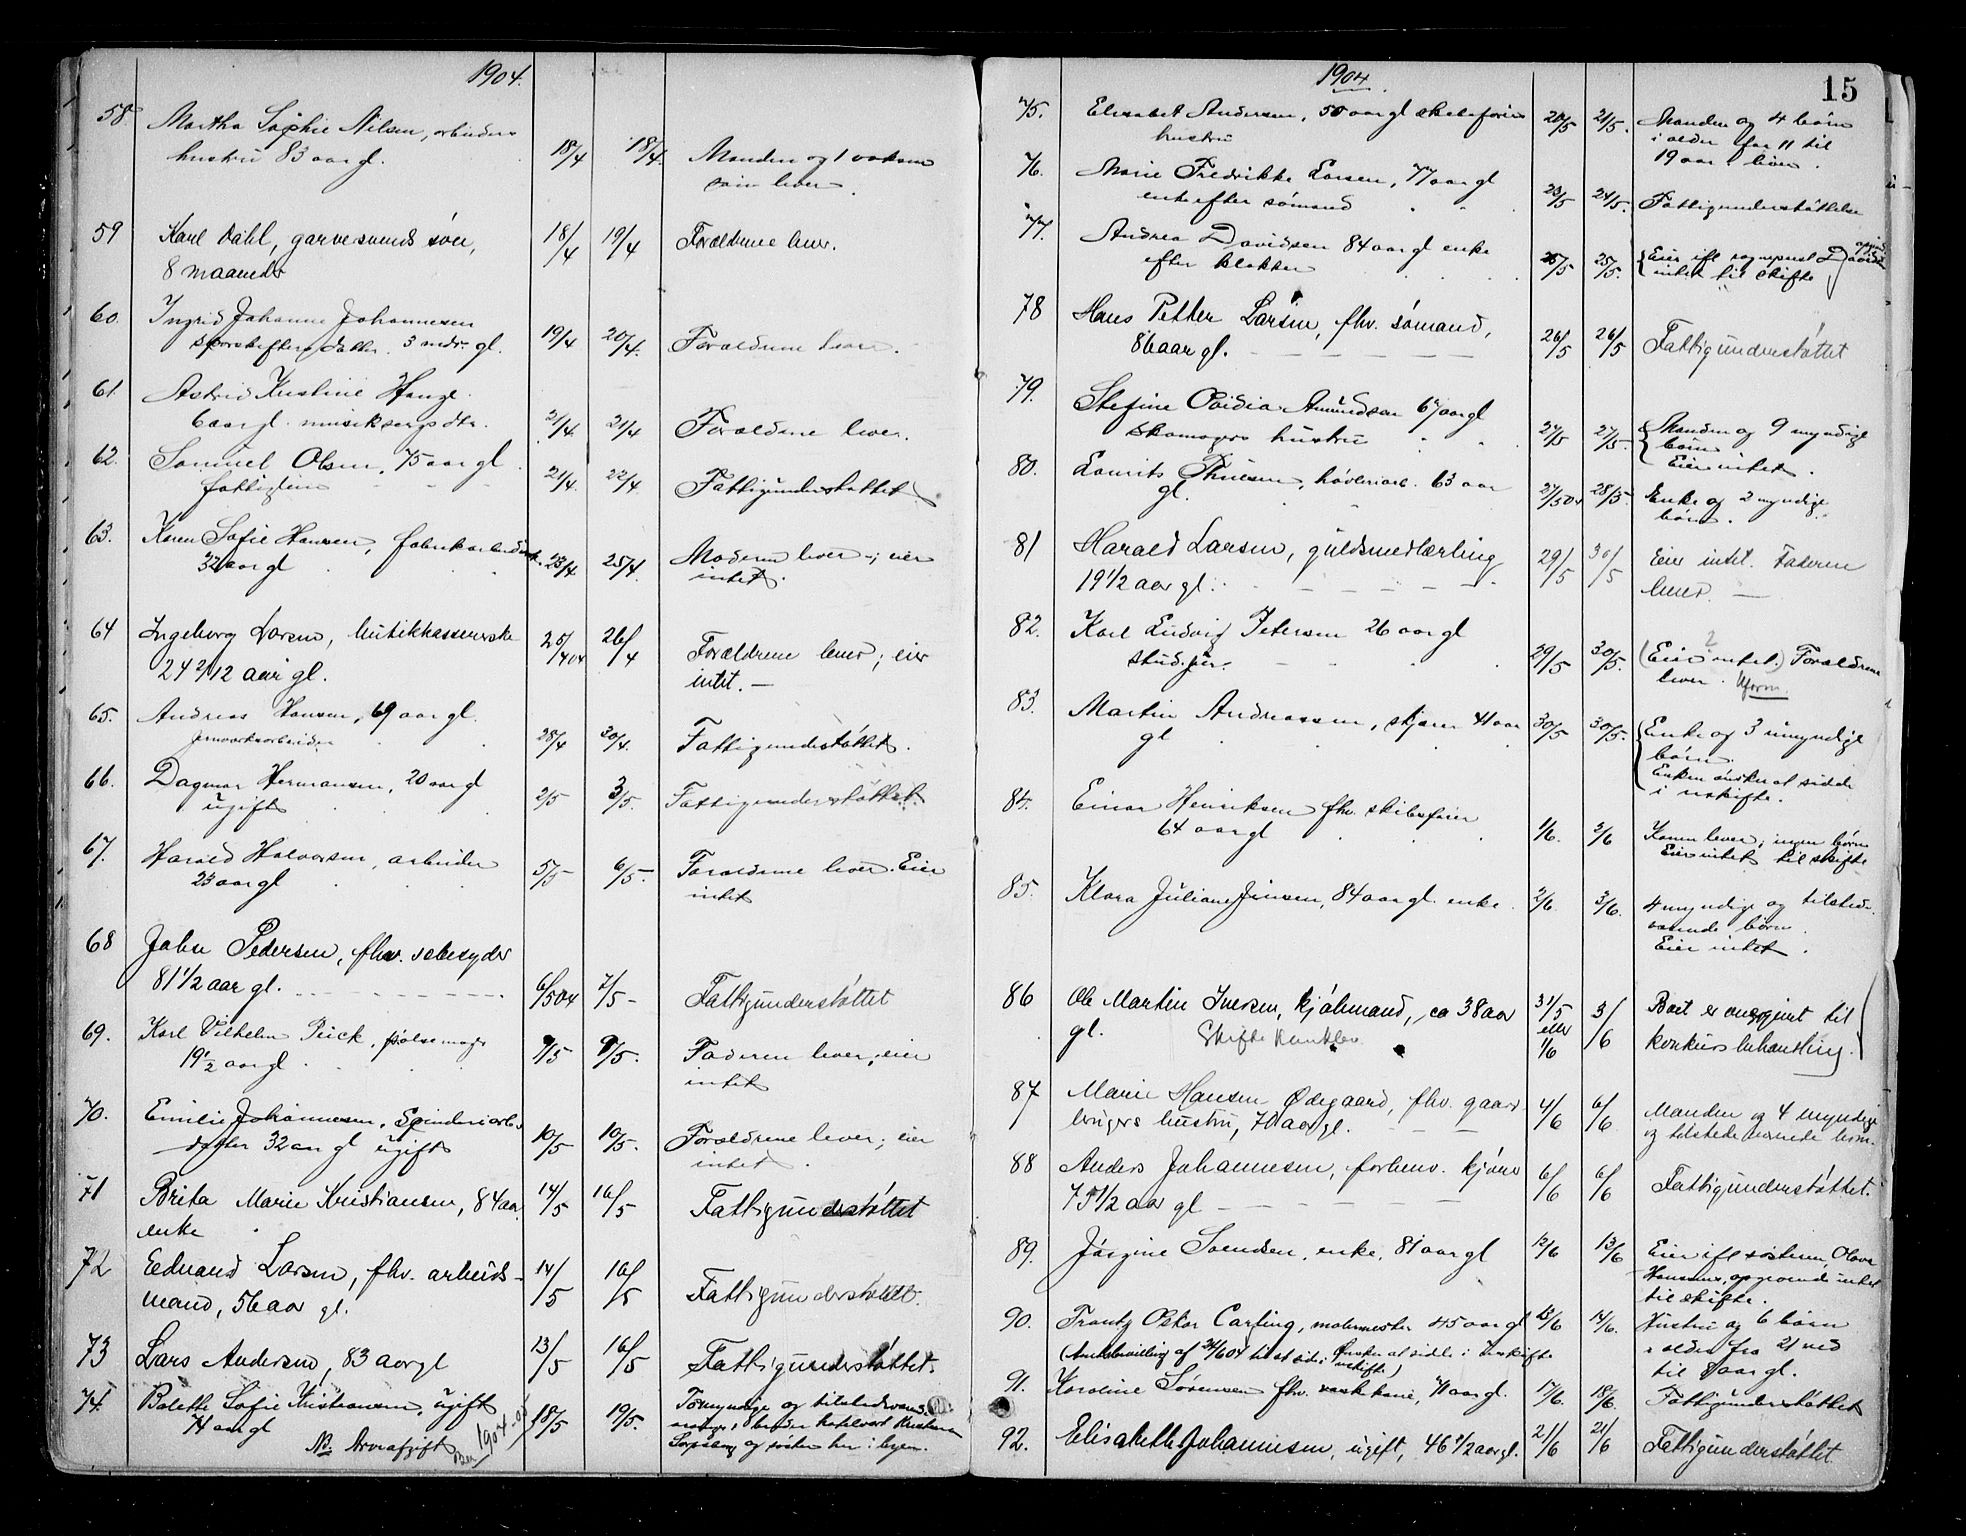 1904.
58 Martha Sophie Nilsen, arbeiders
hustru 83 aar gl. 18/4 18/4. Manden og 1 voksen
søn lever.
59 Karl Dahl, garvesvends søn, 18/4 19/4 Forældrene lever.
8 maaneder
60. Ingrid Johanne Johannesen
datter. 3 mdr. gl. 19/4 20/4. Forældrene lever.
61. Astrid Kristine Hauge
6 aar gl. musikers dtr. 21/4. 21/4 Forældrene lever.
62. Samuel Olsen, 75 aar gl.
fattiglem 21/4. 22/4. Fattigunderstøttet
63. Karen Sofie Hansen, fabrikarbeiderske.
32 aar gl 23/4 25/4. Moderen lever -; eier
intet.
64 Ingeborg Larsen, butikkassererske 25/4 04 26/4 Forældrene lever; eier
24 2/12 aar gl. intet. —
65. Andreas Hansen, 69 aar gl.
jernverksarbeider 28/4 30/4. Fattigunderstøttet.
66. Dagmar Hermansen, 20 aar gl
ugift 2/5 3/5. Fattigunderstøttet.
67. Harald Halvorsen, arbeider 5/5 6/5- Forældrene lever. Eier
23 aar gl intet
68 John Pedersen, fhv. sebesyder
81 1/2 aar gl. 6/5 04 7/5 - Fattigunderstøttet
69. Karl Vilhelm Peick, pølsemager
19 1/2 aar gl. 9/5 9/5. Faderen lever; eier
intet
70. Emilie Johannesen, Spinderiarb.
datter 32 aar gl ugift 10/5 10/5. Forældrene lever; eier
intet.
71 Brita Marie Kristiansen, 84 aar, 14/5 16/5 Fattigunderstøttet
enke
72 Edvard Larsen, fhv. arbeids- 14/5 16/5 Fattigunderstøttet.
mand, 56 aar gl.
73 Lars Andersen, 83 aar gl 13/5 16/5 Fattigunderstøttet.
74. Bolette Sofie Kristiansen, ugift 18/5 19/5. og tilstedeværende
74 aar gl
Sarpsborg og søster her i byen.
NB. Arveafgift 1904-05
1904. 15
75. Elisabet Andersen, 50 aar gl skibsførers 20/5 21/5. Manden og 4 børn
hustru i alder fra 11 til
19 aar lever.
76. Marie Fredrikke Larsen, 77 aar gl
enke efter sømand 23/5 24/5. Fattigunderstøttelse
77. Andrea Davidsen 84 aar gl enke
efter klokker 25/5 25/5. Eier ifl sogneprest
intet til skifte
78 Hans Petter Larsen, fhv. sømand,
86 aar gl. 26/5 26/5 Fattigunderstøttet
79. Stefine Ovidia Amundsen 67 aar gl
skomagers hustru 27/5 27/5. Manden og 9 myndige
børn
Eier intet.
80. Laurits Thuesen, høvleriarb. 63 aar
gl. 27/5 04 28/5. Enke og 2 myndige
børn.
81 Harald Larsen, guldsmedlærling 29/5 30/5 Eier intet. Faderen
19 1/2 aar gl. lever. —
82. Karl Ludvig Petersen 26 aar gl
stud. jur. 29/5 30/5. (Eier intet.) Forældrene
lever.
83. Martin Andreassen, skjærer 41 aar 30/5 30/5. Enke og 3 umyndige
gl børn.
Enken ønsker at sidde
i uskifte.
84. Einar Henriksen fhv. skibsfører
64 aar gl 1/6. 2/6 Konen lever, ingen børn
Eier intet til skifte
85. Klara Juliane Jensen, 84 aar gl. enke 2/6. 3/6. 4 myndige og tilstede-
værende børn.
Eier intet.
86 Ole Martin Iversen, kjøbmand, ca 38 aar 31/5 3/6 Boet er overgivet til
gl. eller 1/6 konkursbehandling.
87 Marie Hansen Ødegaard, fhv. gaard- 4/6 6/6 Manden og 4 myndige
brugers hustru, 70 aar gl. og tilstedeværende børn.
88 Anders Johannesen, forhenv. kjører 6/6 6/6 Fattigunderstøttet.
75 1/2 aar gl
89. Jørgine Svendsen, enke, 81 aar gl 12/6 13/6 Eier ifl søsteren, Olava
Hansens, opgivende intet
til skifte.
90. Frantz Oskar Carling, malermester 45 aar gl 13/6 14/6. Hustru og 6 børn
ønsker at sidde i uskifte i alder fra 21 ned
til 8 aar gl.
91. Karoline Sørensen fhv. vaskekone, 71 aar gl. 17/6. 18/6. Fattigunderstøttet
92. Elisabeth Johannesen, ugift, 46 1/2 aar gl. 21/6 21/6 Fattigunderstøttet